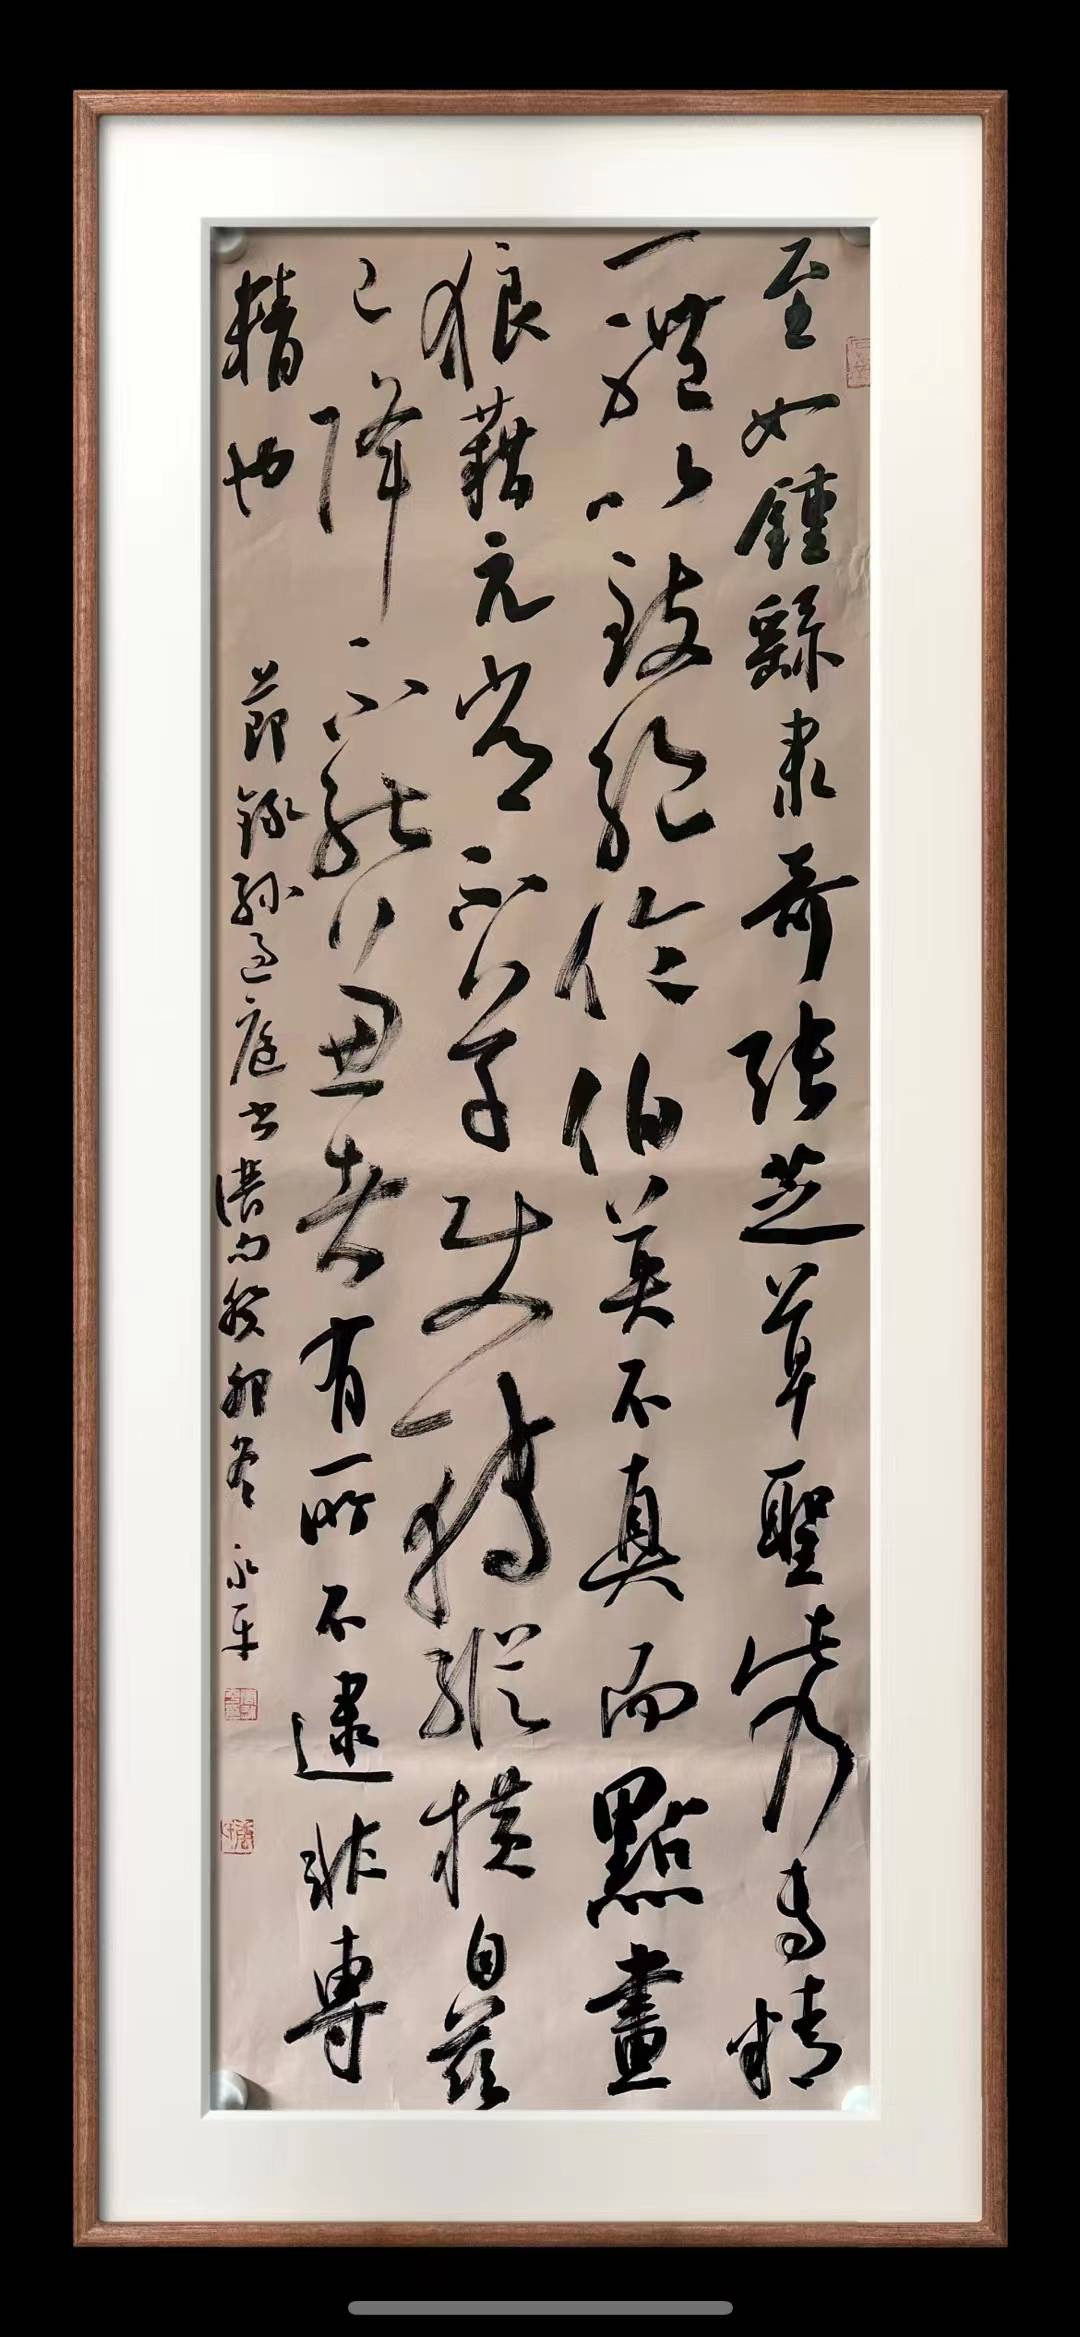 至如鍾繇隸奇張芝草聖此乃專精
一體以致絕倫伯英不真而點畫
狼藉元常不草使轉縱橫自茲
已降不能兼善者有所不逮非專
精也
節錄孫過庭書譜句癸卯冬永平